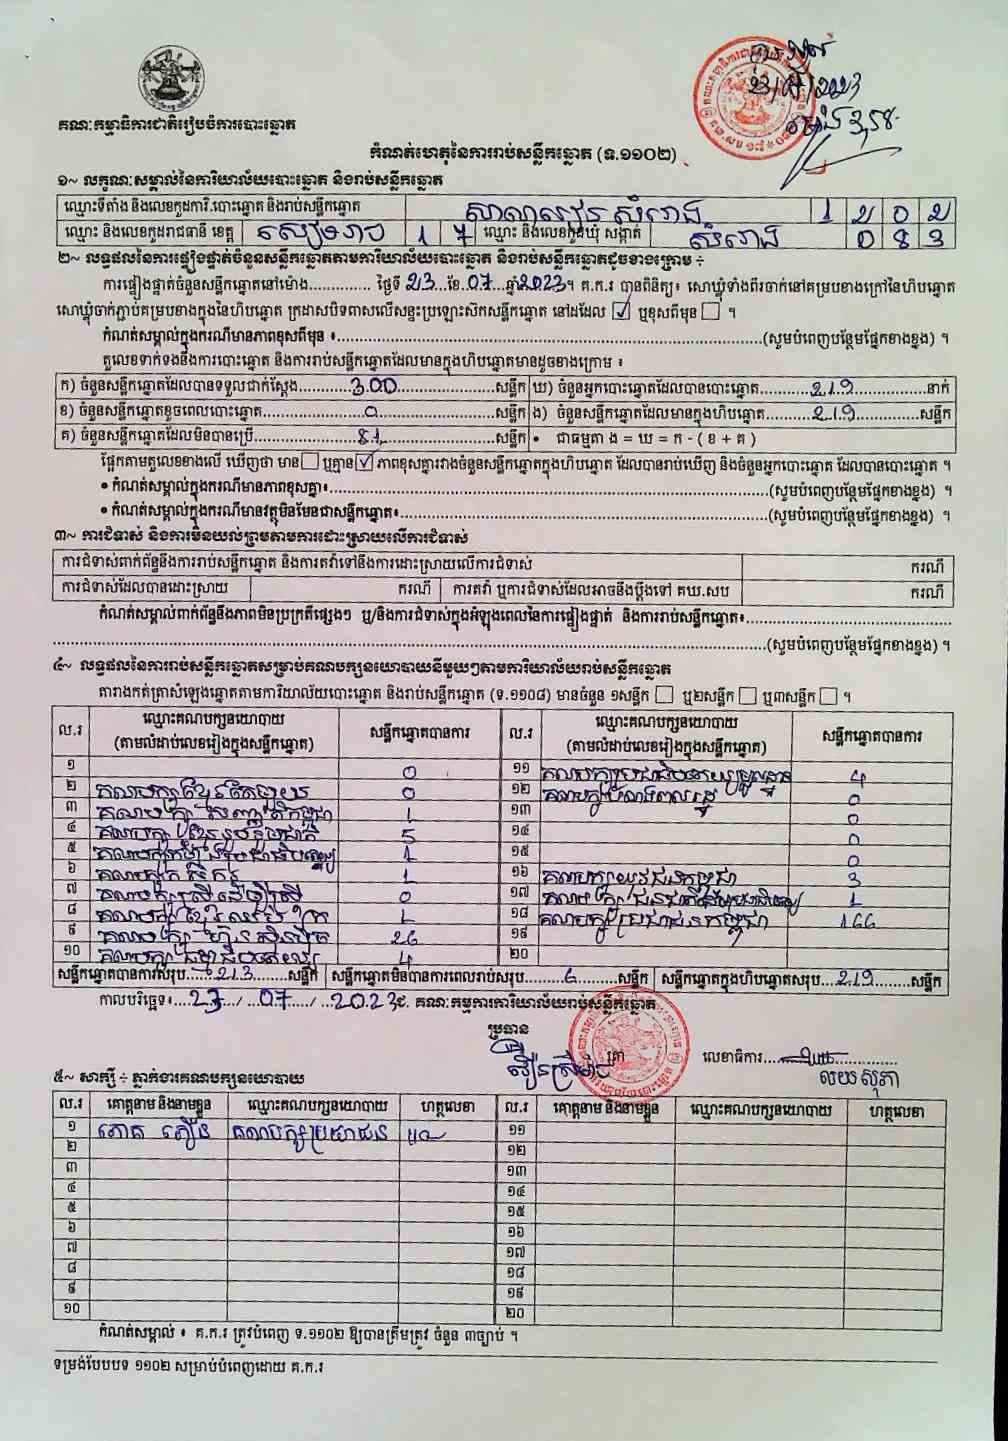 គណៈកម្មាធិការជាតិរៀបចំការបោះឆ្នោត
23/07/2023
កំណត់ហេតុនៃការរាប់សន្លឹកឆ្នោត (ទ.១១០២)
១~ លក្ខណៈសម្គាល់នៃការិយាល័យបោះឆ្នោត និងរាប់សន្លឹកឆ្នោត
ឈ្មោះទីតាំង និងលេខកូដការិ.បោះឆ្នោត និងរាប់សន្លឹកឆ្នោត សាលារៀន សំរោង 1 2 0 2
ឈ្មោះ និងលេខកូដរាជធានី ខេត្ត សៀមរាប 1 7 ឈ្មោះ និងលេខកូដឃុំ សង្កាត់ សំរោង 0 8 3
២~ លទ្ធផលនៃការផ្ទៀងផ្ទាត់ចំនួនសន្លឹកឆ្នោតតាមការិយាល័យបោះឆ្នោត និងរាប់សន្លឹកឆ្នោតដូចខាងក្រោម ÷
ការផ្ទៀងផ្ទាត់ចំនួនសន្លឹកឆ្នោតនៅម៉ោង.............. ថ្ងៃទី 23 ..ខែ. 07 ...ឆ្នាំ 2023 ។ គ.ក.រ បានពិនិត្យ៖ សោឃ្លុំទាំងពីរចាក់នៅគម្របខាងក្រៅនៃហិបឆ្នោត
សោឃ្លុំចាក់ភ្ជាប់គម្របខាងក្នុងនៃហិបឆ្នោត ក្រដាសបិទពាសលើសន្ទះប្រឡោះស៊កសន្លឹកឆ្នោត នៅដដែល ☑ ឬខុសពីមុន ☐ ។
កំណត់សម្គាល់ក្នុងករណីមានភាពខុសពីមុន ៖..............................(សូមបំពេញបន្ថែមផ្នែកខាងខ្នង) ។
តួលេខទាក់ទងនឹងការបោះឆ្នោត និងការរាប់សន្លឹកឆ្នោតដែលមានក្នុងហិបឆ្នោតមានដូចខាងក្រោម ៖
ក) ចំនួនសន្លឹកឆ្នោតដែលបានទទួលជាក់ស្តែង.......... 300 ..........សន្លឹក ឃ) ចំនួនអ្នកបោះឆ្នោតដែលបានបោះឆ្នោត.......... 219 ..........នាក់
ខ) ចំនួនសន្លឹកឆ្នោតខូចពេលបោះឆ្នោត.......... 0 ..........សន្លឹក ង) ចំនួនសន្លឹកឆ្នោតដែលមានក្នុងហិបឆ្នោត.......... 219 ..........សន្លឹក
គ) ចំនួនសន្លឹកឆ្នោតដែលមិនបានប្រើ.......... 81 ..........សន្លឹក • ជាធម្មតា ង = ឃ = ក - ( ខ + គ )
ផ្អែកតាមតួលេខខាងលើ ឃើញថា មាន ☐ ឬគ្មាន ☑ ភាពខុសគ្នារវាងចំនួនសន្លឹកឆ្នោតក្នុងហិបឆ្នោត ដែលបានរាប់ឃើញ និងចំនួនអ្នកបោះឆ្នោត ដែលបានបោះឆ្នោត ។
• កំណត់សម្គាល់ក្នុងករណីមានភាពខុសគ្នា៖..............................(សូមបំពេញបន្ថែមផ្នែកខាងខ្នង) ។
• កំណត់សម្គាល់ក្នុងករណីមានវត្ថុមិនមែនជាសន្លឹកឆ្នោត៖..............................(សូមបំពេញបន្ថែមផ្នែកខាងខ្នង) ។
៣~ ការជំទាស់ និងការមិនយល់ព្រមតាមការដោះស្រាយលើការជំទាស់
ការជំទាស់ពាក់ព័ន្ធនឹងការរាប់សន្លឹកឆ្នោត និងការតវ៉ាទៅនឹងការដោះស្រាយលើការជំទាស់ ករណី
ការជំទាស់ដែលបានដោះស្រាយ ករណី ការតវ៉ា ឬការជំទាស់ដែលអាចនឹងប្តឹងទៅ គឃ.សប ករណី
កំណត់សម្គាល់ពាក់ព័ន្ធនឹងភាពមិនប្រក្រតីផ្សេងៗ ឬ/និងការជំទាស់ក្នុងអំឡុងពេលនៃការផ្ទៀងផ្ទាត់ និងការរាប់សន្លឹកឆ្នោត៖..............................
..............................(សូមបំពេញបន្ថែមផ្នែកខាងខ្នង) ។
៤~ លទ្ធផលនៃការរាប់សន្លឹកឆ្នោតសម្រាប់គណបក្សនយោបាយនីមួយៗតាមការិយាល័យរាប់សន្លឹកឆ្នោត
តារាងកត់ត្រាសំឡេងឆ្នោតតាមការិយាល័យបោះឆ្នោត និងរាប់សន្លឹកឆ្នោត (ទ.១១០៨) មានចំនួន ១សន្លឹក ☐ ឬ២សន្លឹក ☐ ឬ៣សន្លឹក ☐ ។
ល.រ ឈ្មោះគណបក្សនយោបាយ (តាមលំដាប់លេខរៀងក្នុងសន្លឹកឆ្នោត) សន្លឹកឆ្នោតបានការ ល.រ ឈ្មោះគណបក្សនយោបាយ (តាមលំដាប់លេខរៀងក្នុងសន្លឹកឆ្នោត) សន្លឹកឆ្នោតបានការ
១ 0 ១១ គណបក្សប្រជាធិបតេយ្យមូលដ្ឋាន 4
២ គណបក្សខ្មែរតែមួយ 0 ១២ គណបក្សពលរដ្ឋ 0
៣ គណបក្ស 1 ១៣ 0
៤ គណបក្ស ខ្មែររួបរួមជាតិ 5 ១៤ 0
៥ គណបក្ស 1 ១៥ 0
៦ គណបក្សកសិករ 1 ១៦ គណបក្សយុវជនកម្ពុជា 3
៧ គណបក្សស្ត្រីដើម្បីស្ត្រី 0 ១៧ គណបក្ស 1
៨ គណបក្ស 1 ១៨ គណបក្សប្រជាជនកម្ពុជា 166
៩ គណបក្ស ហ៊្វុនស៊ិនប៉ិច 26 ១៩
១០ គណបក្ស ធម្មាធិបតេយ្យ 4 ២០
សន្លឹកឆ្នោតបានការសរុប...... 213 ......សន្លឹក សន្លឹកឆ្នោតមិនបានការពេលរាប់សរុប...... 6 ......សន្លឹក សន្លឹកឆ្នោតក្នុងហិបឆ្នោតសរុប.... 219 ......សន្លឹក
កាលបរិច្ឆេទ៖... 23 .../... 07 .../... 2023 ជ. គណៈកម្មការការិយាល័យរាប់សន្លឹកឆ្នោត
ប្រធាន
លេខាធិការ
លយ សុភា
៥~ សាក្សី ÷ ភ្នាក់ងារគណបក្សនយោបាយ
ល.រ គោត្តនាម និងនាមខ្លួន ឈ្មោះគណបក្សនយោបាយ ហត្ថលេខា ល.រ គោត្តនាម និងនាមខ្លួន ឈ្មោះគណបក្សនយោបាយ ហត្ថលេខា
១ គណបក្សប្រជាជន ១១
២ ១២
៣ ១៣
៤ ១៤
៥ ១៥
៦ ១៦
៧ ១៧
៨ ១៨
៩ ១៩
១០ ២០
កំណត់សម្គាល់ ៖ គ.ក.រ ត្រូវបំពេញ ទ.១១០២ ឱ្យបានត្រឹមត្រូវ ចំនួន ៣ច្បាប់ ។
ទម្រង់បែបបទ ១១០២ សម្រាប់បំពេញដោយ គ.ក.រ